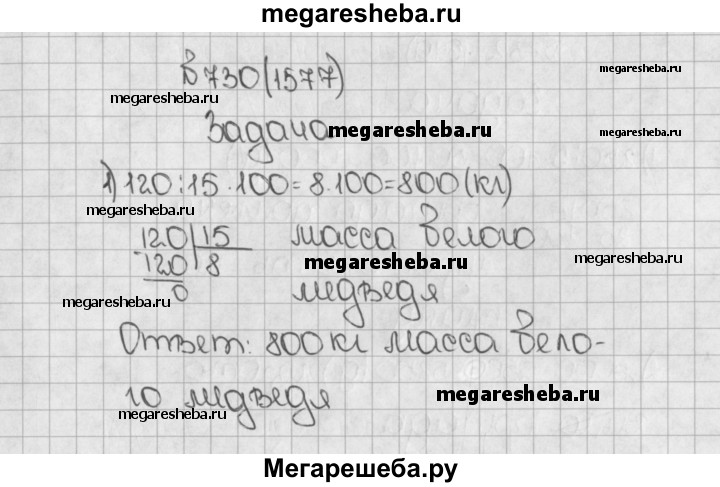 megaresheba.ru
№730(1577)
megaresheba.ru
megaresheba.ru
Задача
megaresheba.ru
megaresheba.ru
1) 120:15·100=8·100=800(кг)
megaresheba.ru
120 | 15 масса белого
-120 | 8
megaresheba.ru
megaresheba.ru
0 медведя
Ответ: 800кг масса бело-
го медведя
megaresheba.ru
megaresheba.ru
Мегарешеба.ру